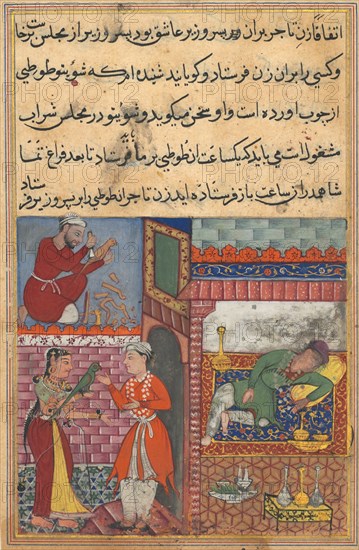 اتفاقا زن تاجر بران پسر وزیر عاشق بود پسر وزیر از مجلس برخاست
وکسی را بران زن فرستاد و کویاند شنیده ام که شوی تو طوطی
از چوب آورده است و او سخن میکوید و شوی تو در مجلس شراب
مشغول است می باید که یکساعت ان طوطی بر ما فرستاد تا بعد فراغ تماشا
از ساعت باز فرستاده اید زن تاجر ان طوطی را بر پسر وزیر فرستاد